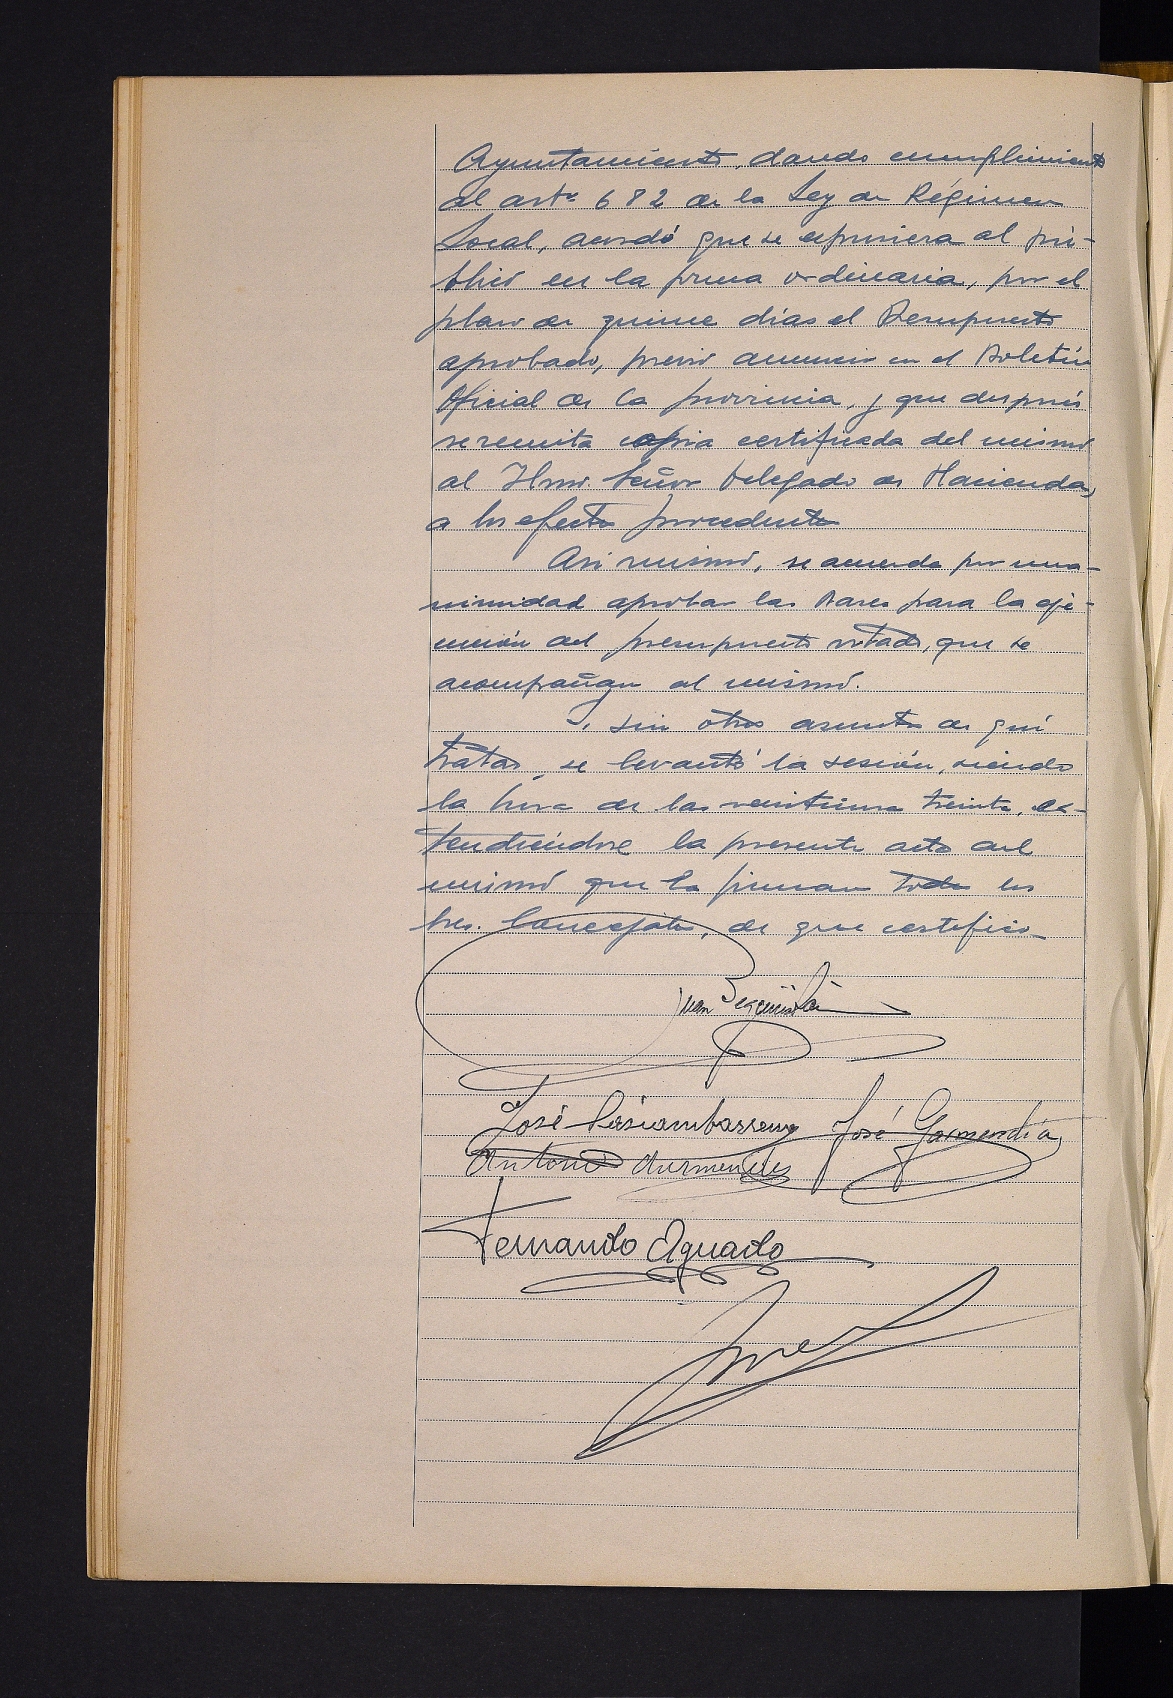 Ayuntamiento, dando cumplimiento
al artº 682 de la Ley de Régimen
Local, acordó que se expusiera al pú-
blico en la forma ordinaria, por el
plazo de quince días el Presupuesto
aprobado, previo anuncio en el Boletín
Oficial de la provincia, y que después
se remita copia certificada del mismo
al Ilmo. Señor Delegado de Hacienda,
a los efectos procedentes
Asi mismo, se acuerda por una-
nimidad aprobar las Bases para la eje-
cución del presupuesto votado, que se
acompañan al mismo.
Y, sin otros asuntos de que
tratar, se levantó la sesión, siendo
la hora de las veintiuna treinta, ex-
tendiéndose la presente acta del
mismo que la firman todos los
Sres. Concejales, de que certifico.
Juan
José Lasciambarreny José Garmendia
Antonio Armendia
Fernando Aguado